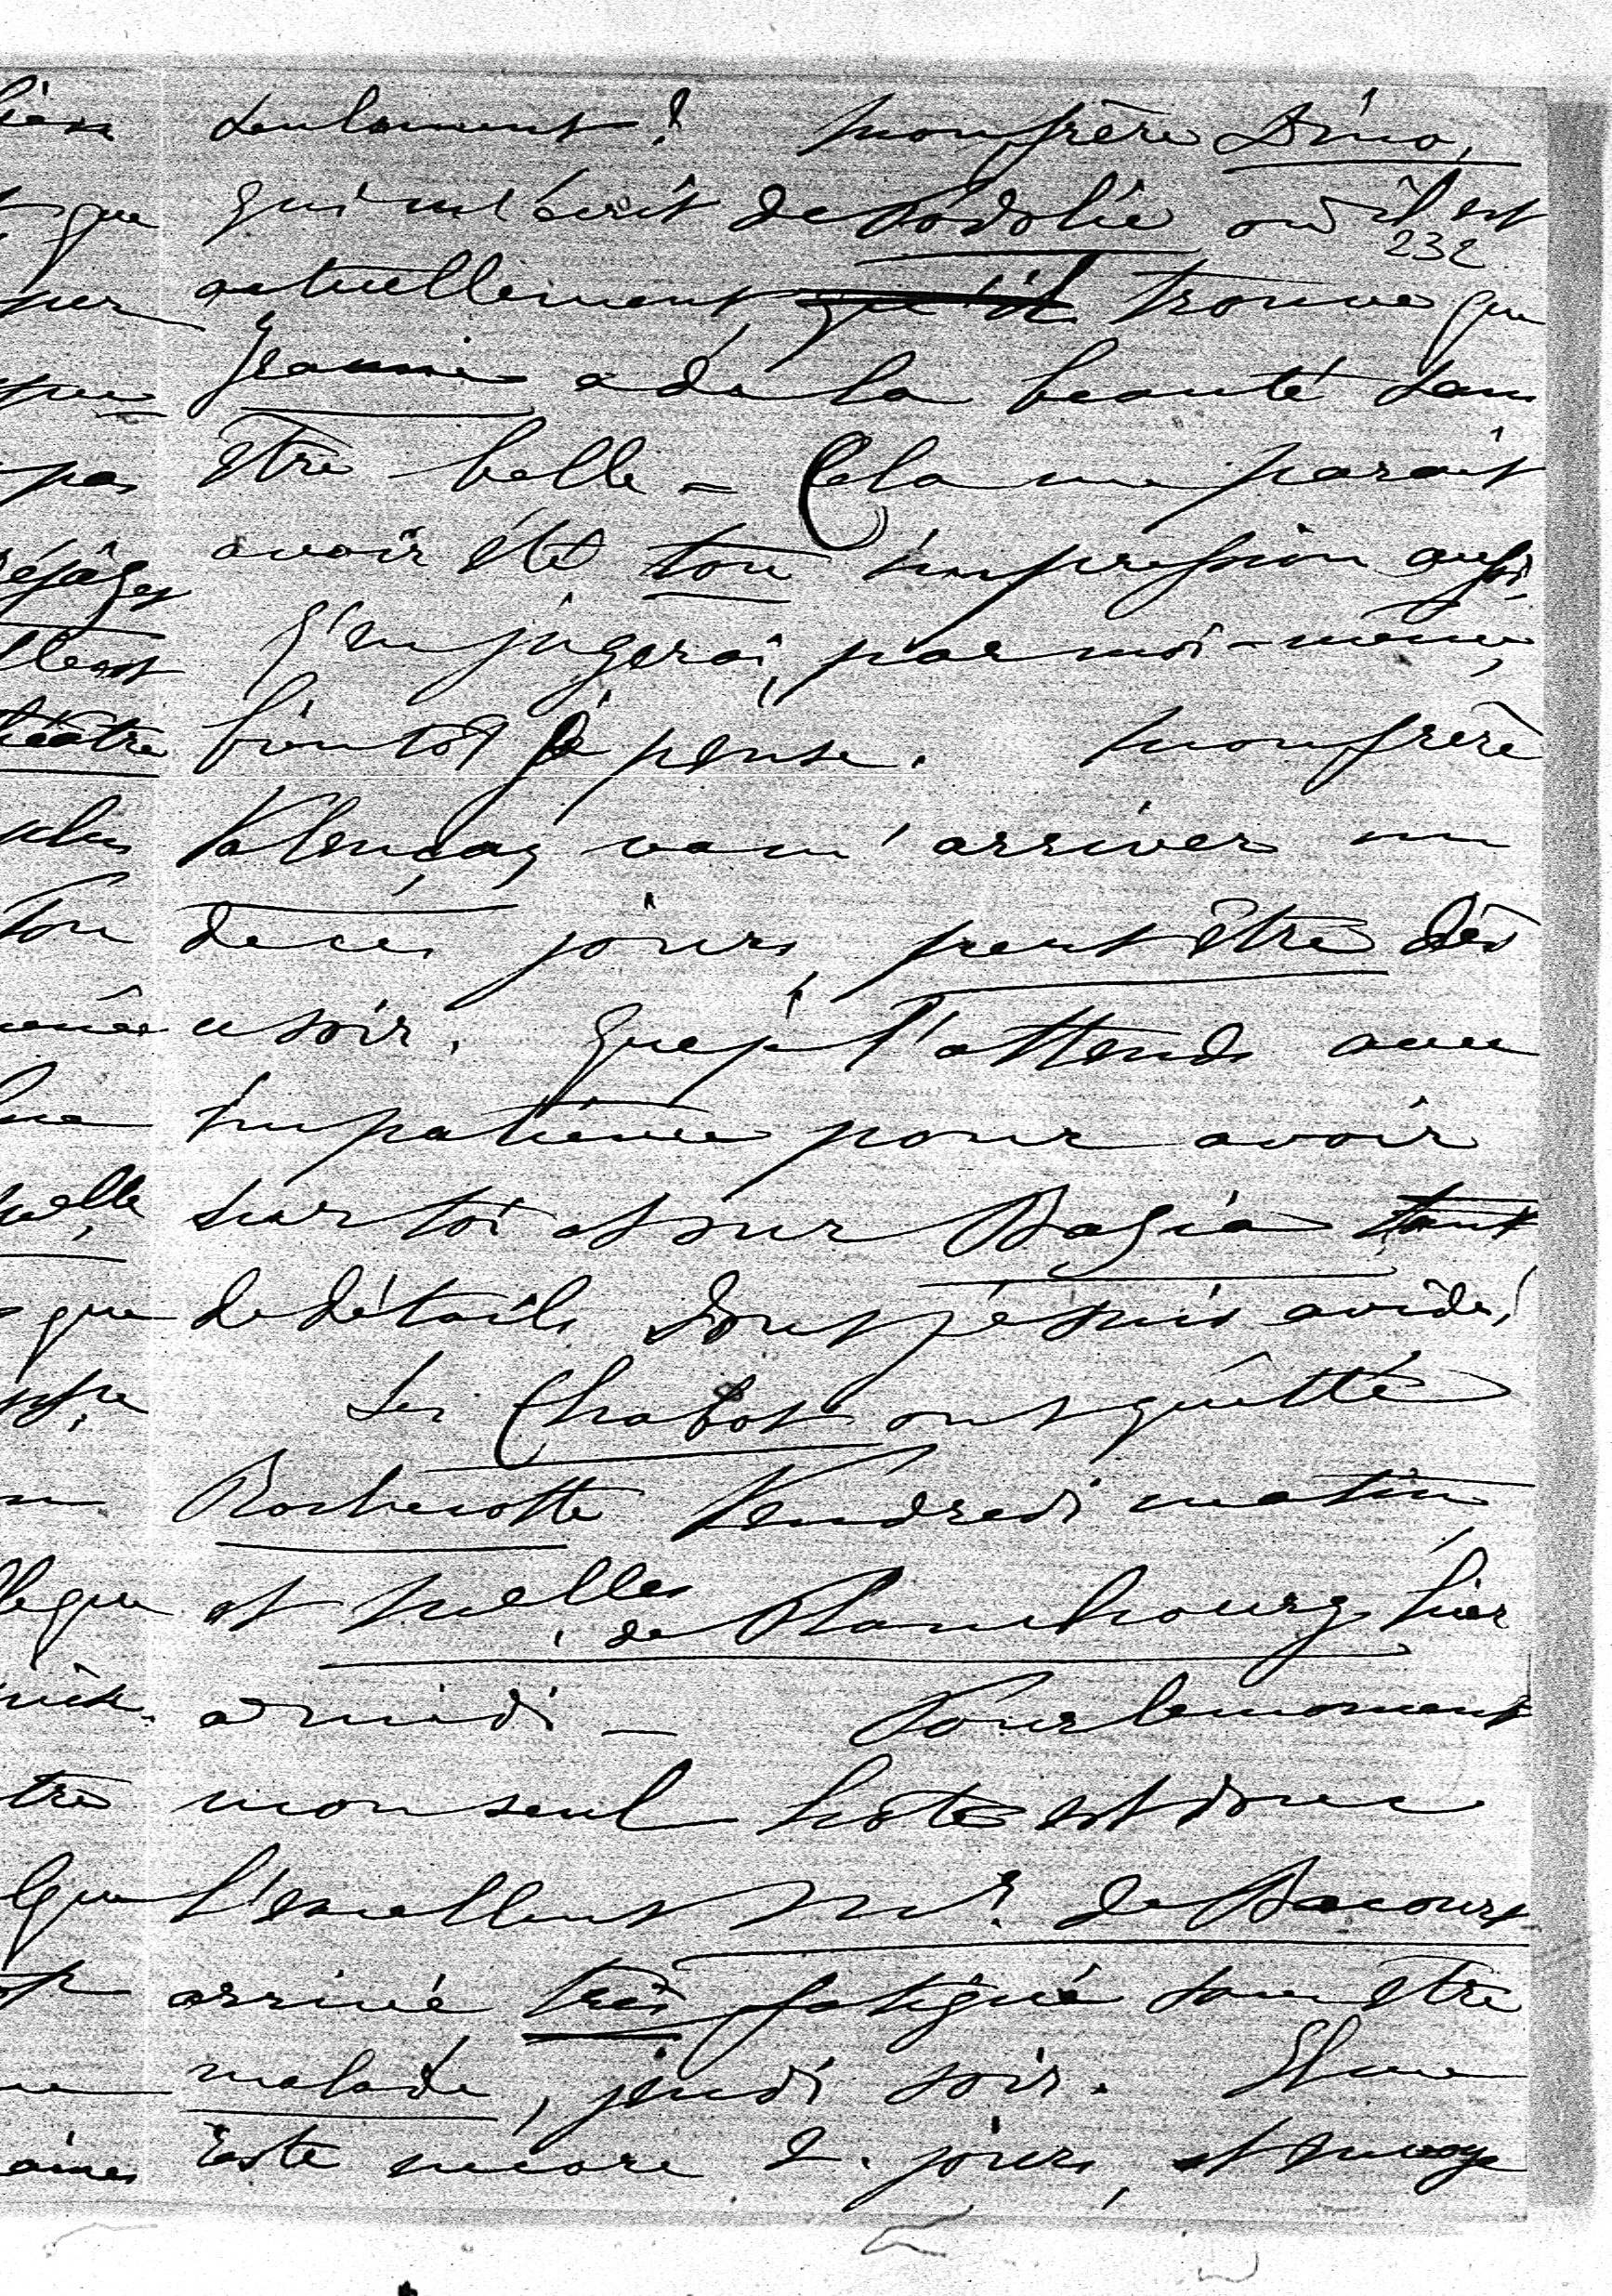 seulement! mon frère Dino,
qui m'écrit de Podolie où il est
232
actuellement, qu'il trouve que
Jeanne a de la beauté sans
être belle – Cela me paraît
avoir été ton impression aussi,
j'en jugerai, par moi-même,
bientôt je pense. mon frère
Valençay va m'arriver un
de ces jours, peut être dès
ce soir. Que je l'attends avec
impatience pour avoir
sur toi et sur Basia tant
de détails dont je suis avide!
Les Chabot ont quitté
Rochecotte Vendredi matin,
et Melles de Rambourg, hier
à midi – Pour le moment
mon seul hôte est donc
l'excellent Mr. de Bacourt
arrivé très fatigué sans être
malade, jeudi soir. Il me
reste encore 2. jours, et
que
pas
théâtre
plus
Ton
que